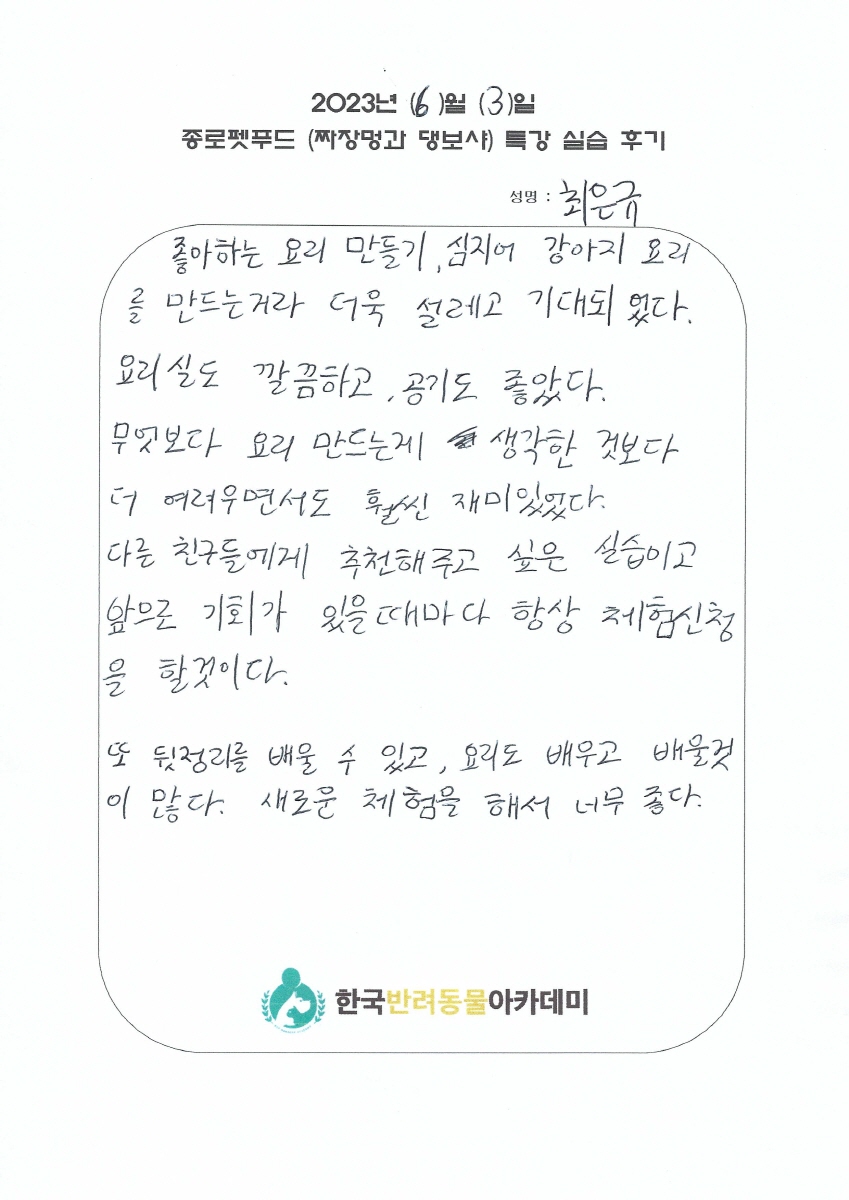 2023년 (6)월 (3)일
종로펫푸드 (짜장멍과 댕보샤) 특강 실습 후기
성명 : 최은규
좋아하는 요리 만들기, 심지어 강아지 요리
를 만드는거라 더욱 설레고 기대되었다.
요리실도 깔끔하고, 공기도 좋았다.
무엇보다 요리 만드는게 생각한 것보다
더 여려우면서도 훨씬 재미있었다.
다른 친구들에게 추천해주고 싶은 실습이고
앞으로 기회가 있을때마다 항상 체험신청
을 할것이다.
또 뒷정리를 배울 수 있고, 요리도 배우고 배울것
이 많다. 새로운 체험을 해서 너무 좋다.
한국반려동물아카데미